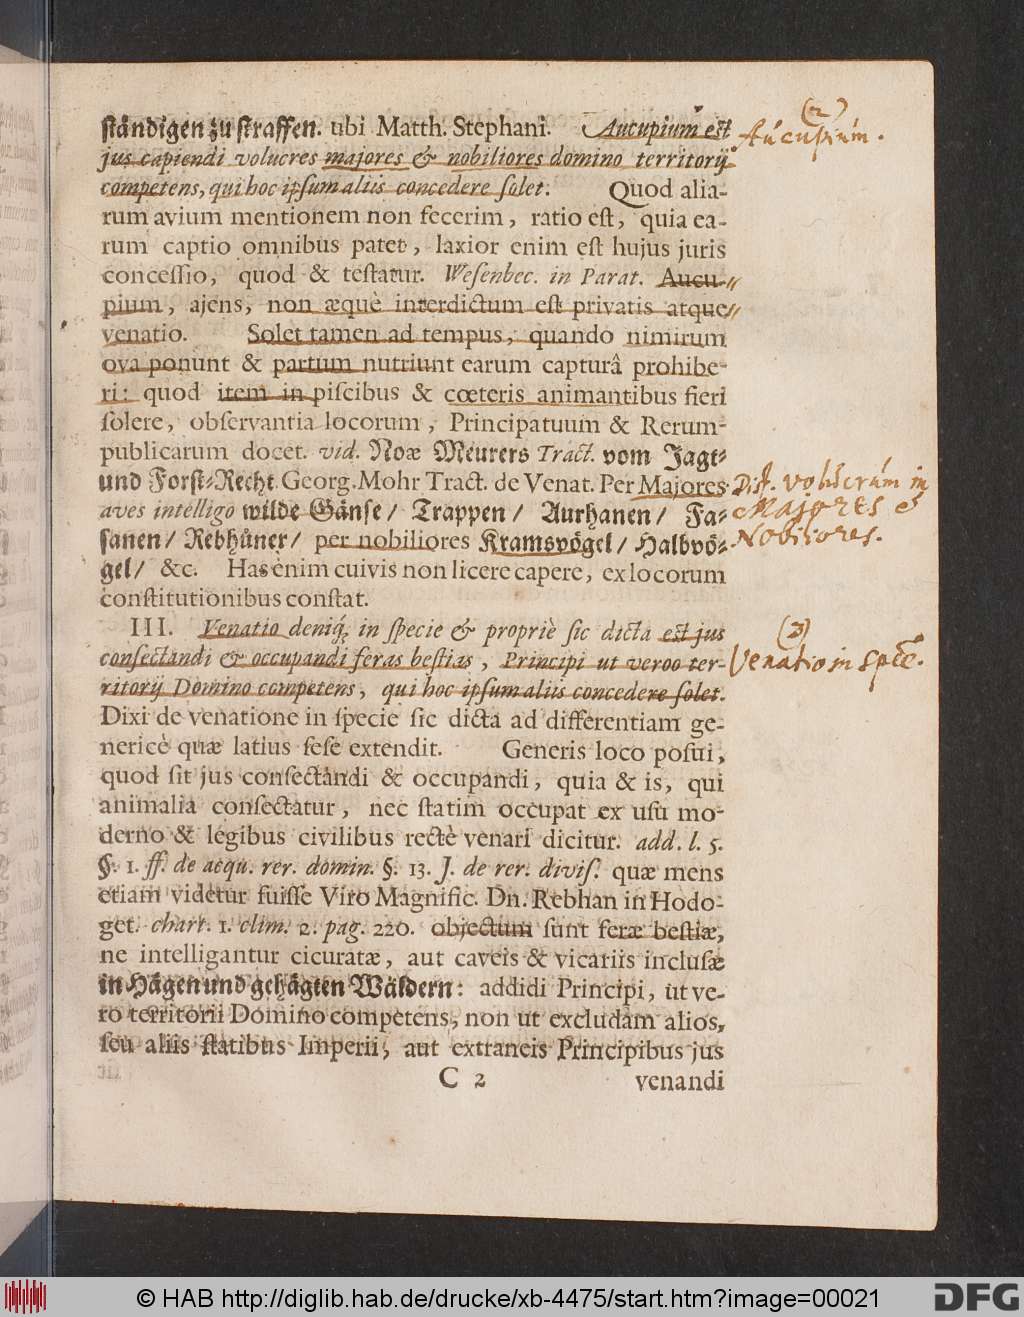 ständigen zu straffen. ubi Matth. Stephani. Aucupium est
jus capiendi volucres majores & nobiliores domino territorij
competens, qui hoc ipsum aliis concedere solet. Quod alia-
rum avium mentionem non fecerim, ratio est, quia ea-
rum captio omnibus patet, laxior enim est hujus juris
concessio, quod & testatur. Wesenbec. in Parat. Aucu-
pium, ajens, non æquè interdictum est privatis atque
venatio. Solet tamen ad tempus, quando nimirum
ova ponunt & partum nutriunt earum capturâ prohibe-
ri: quod item in piscibus & cœteris animantibus fieri
solere, observantia locorum, Principatuum & Rerum-
publicarum docet. vid. Noæ Meurers Tract. vom Jagt-
und Forst-Recht Georg. Mohr Tract. de Venat. Per Majores
aves intelligo wilde Gänse/ Trappen/ Aurhanen/ Fa-
sanen/ Rebhüner/ per nobiliores Kramsvögel/ Halbvö-
gel/ &c. Has enim cuivis non licere capere, ex locorum
constitutionibus constat.
III. Venatio deniq; in specie & propriè sic dicta est jus
consectandi & occupandi feras bestias, Principi ut veroo ter-
ritorij Domino competens, qui hoc ipsum aliis concedere solet.
Dixi de venatione in specie sic dicta ad differentiam ge-
nericè quæ latius sese extendit. Generis loco posui,
quod sit jus consectandi & occupandi, quia & is, qui
animalia consectatur, nec statim occupat ex usu mo-
derno & legibus civilibus rectè venari dicitur. add. l. 5.
§. 1. ff. de acqu. rer. domin. §. 13. J. de rer. divis. quæ mens
etiam videtur fuisse Viro Magnific. Dn. Rebhan in Hodo-
get. chart. 1. clim. 2. pag. 220. objectum sunt feræ bestiæ,
ne intelligantur cicuratæ, aut caveis & vicariis inclusæ
in Hägen und gehägten Wäldern: addidi Principi, ut ve-
ro territorii Domino competens, non ut excludam alios,
seu aliis statibus Imperii, aut extraneis Principibus jus
C 2 venandi
(2)
Aucupium.
Dist. volucrum in
Majores &
Nobiliores.
(3)
Venatio in specie.
© HAB http://diglib.hab.de/drucke/xb-4475/start.htm?image=00021
DFG